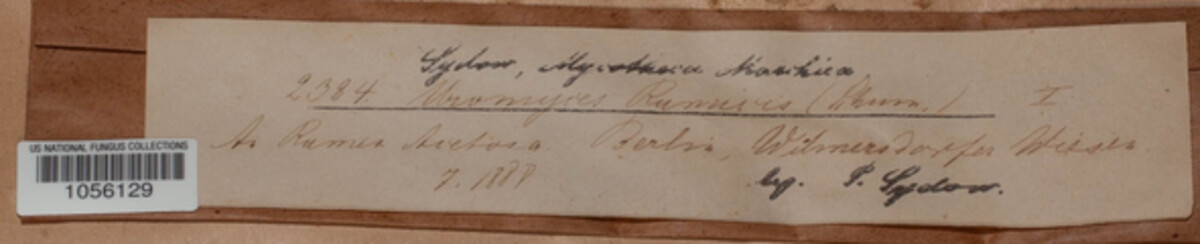 Sydow, Mycotheca Marchica
2384 Uromyces Rumicis (Schum.) I
An Rumex Acetosa Berlin, Wilmersdorfer Wiesen
7. 1888
leg. P. Sydow.
US NATIONAL FUNGUS COLLECTIONS
1056129